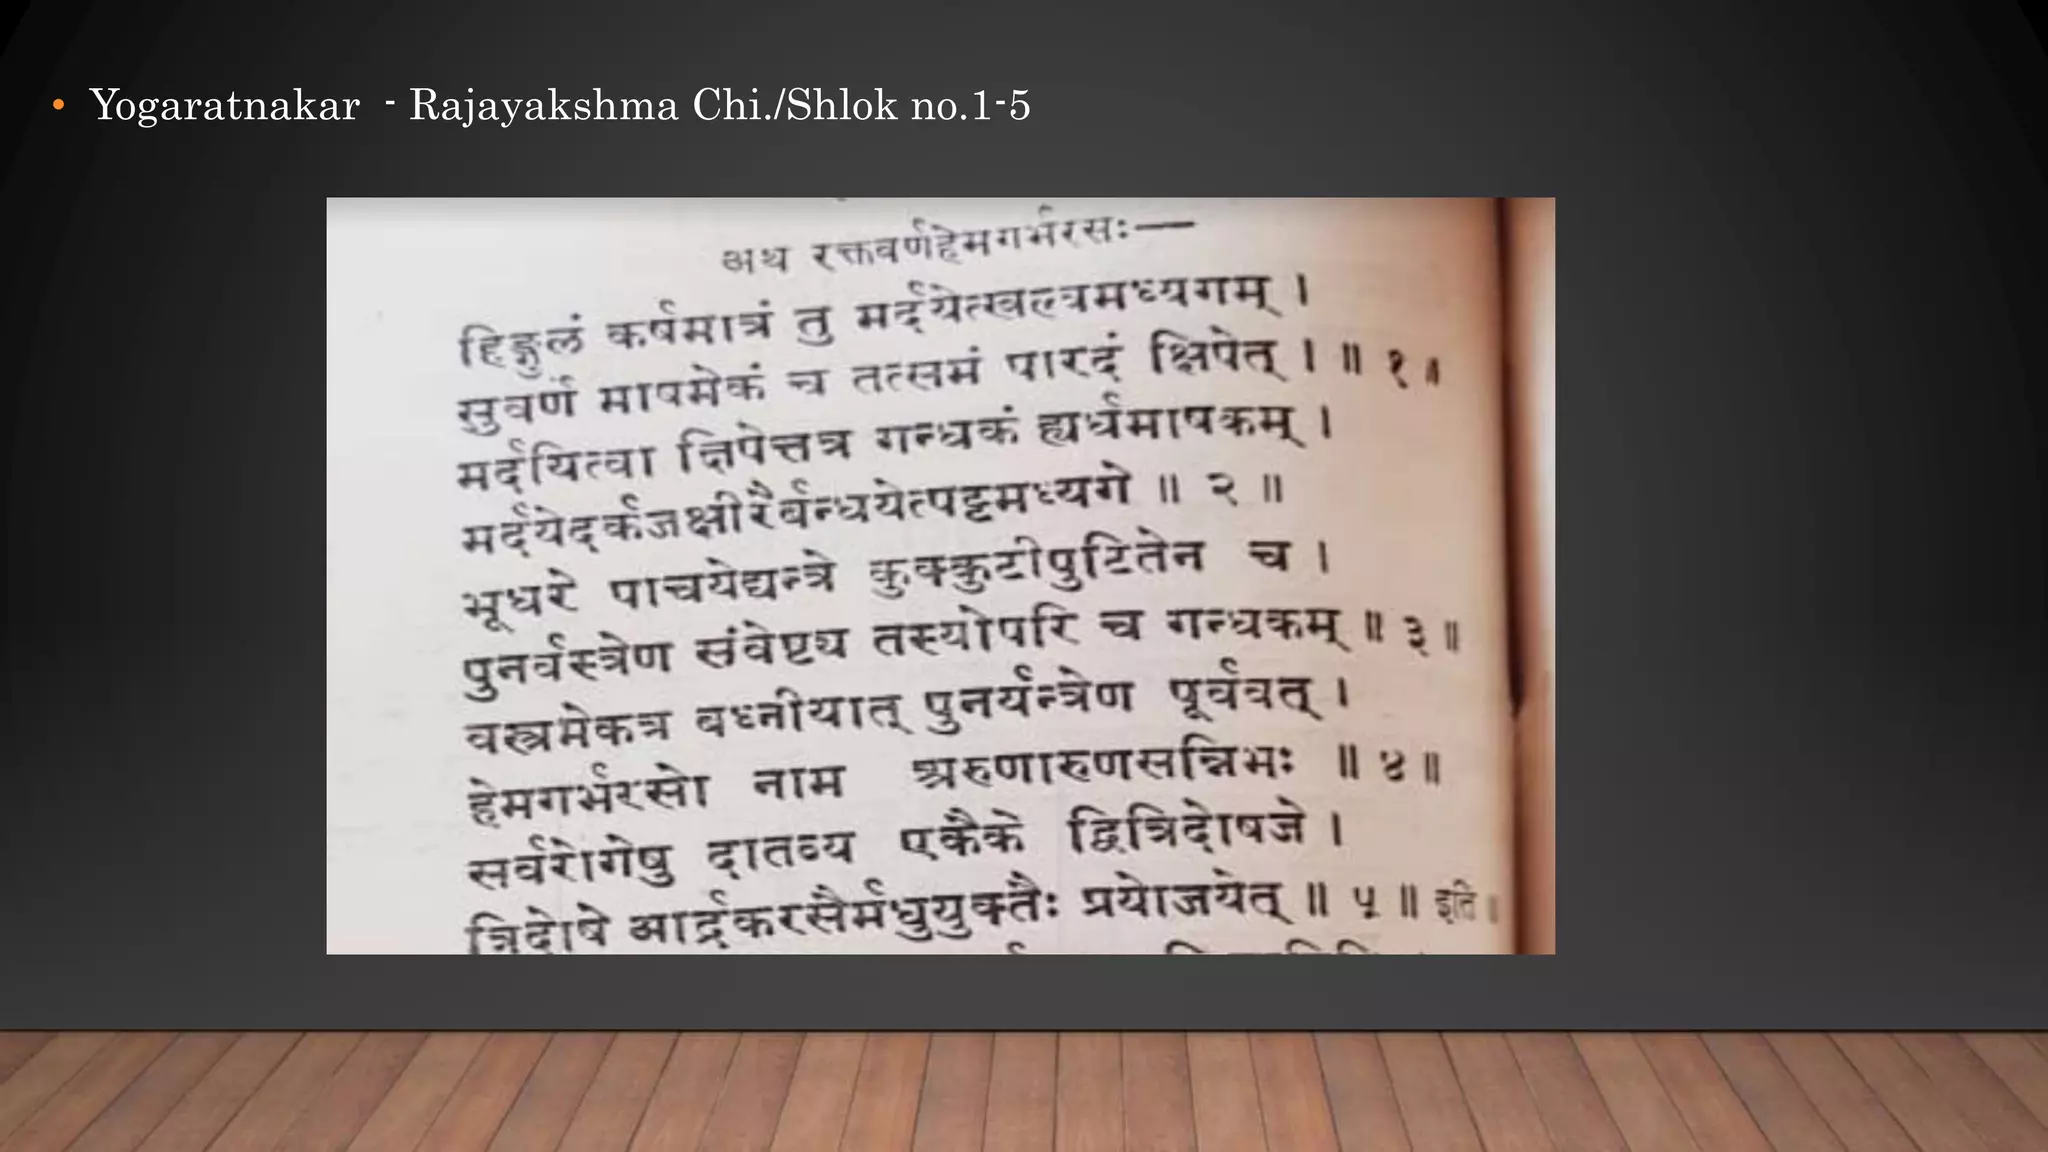 • Yogaratnakar - Rajayakshma Chi./Shlok no.1-5
अथ रक्तवर्णहेमगर्भरसः—
हिङ्गुलं कर्षमात्रं तु मर्दयेत्खल्वमध्यगम् ।
सुवर्णं माषमेकं च तत्समं पारदं क्षिपेत् । ॥ १ ॥
मर्दयित्वा क्षिपेत्तत्र गन्धकं ह्यर्धमाषकम् ।
मर्दयेदर्कजक्षीरैर्बन्धयेत्पट्टमध्यगे ॥ २ ॥
भूधरे पाचयेद्यन्त्रे कुक्कुटीपुटितेन च ।
पुनर्वस्त्रेण संवेष्ट्य तस्योपरि च गन्धकम् ॥ ३ ॥
वस्त्रमेकत्र बध्नीयात् पुनर्यन्त्रेण पूर्ववत् ।
हेमगर्भरसो नाम अरुणारुणसन्निभः ॥ ४ ॥
सर्वरोगेषु दातव्य एकैके द्वित्रिदोषजे ।
त्रिदोषे आर्द्रकरसैर्मधुयुक्तैः प्रयोजयेत् ॥ ५ ॥ इति ।